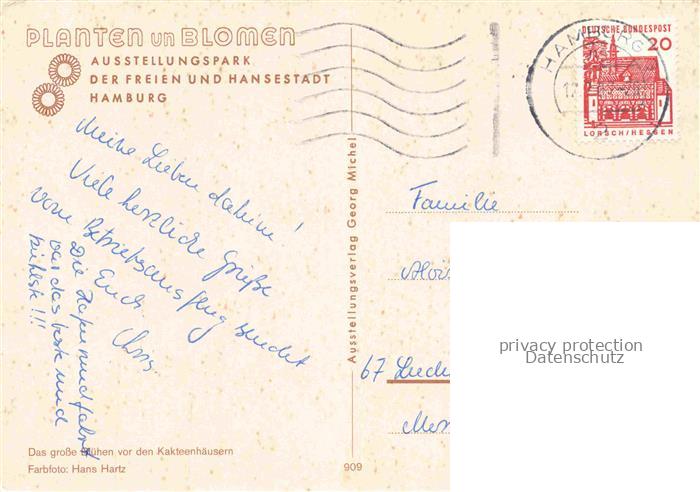 PLANTEN un BLOMEN
AUSSTELLUNGSPARK
DER FREIEN UND HANSESTADT
HAMBURG
Meine Lieben daheim!
Viele herzliche Grüße
vom Betriebsausflug sendet
Euch
Die Hafenrundfahrt
war das beste und
kühlste!!!
Das große Blühen vor den Kakteenhäusern
Farbfoto: Hans Hartz
Ausstellungsverlag Georg Michel
909
HAMBURG
DEUTSCHE BUNDESPOST
20
LORSCH/HESSEN
Familie
Alois
67
privacy protection
Datenschutz